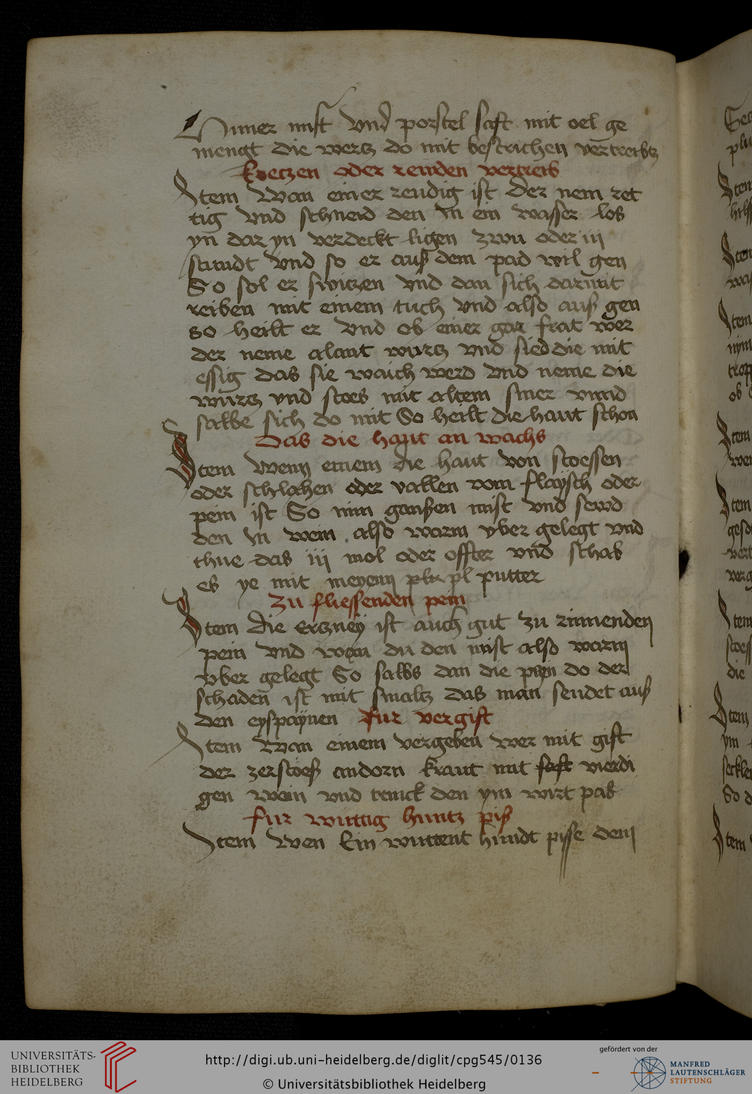 Hunner mist vnd porstel saft mit oel ge
mengt die wertz do mit bestrichen vertreibtz
kreczen oder reuden vertreib
Item Wan einer reudig ist der nem ret
tig vnd schneid den In ein wasser los
yn dar yn verdeckt ligen zwu oder iii
stundt vnd so er auß dem pad wil gen
So sol er swiczen vnd dan sich darmit
reiben mit einem tuch vnd also auß gen
so heilt er vnd ob einer gar frat wer
der neme alant wurtz vnd sied die mit
essig das sie waich werd vnd neme die
wurtz vnd stoes mit altem smer vnnd
salbe sich do mit So heilt die haut schon
Das die haut an wachs
Item Wenn einem die haut von stoessen
oder schlahen oder vallen vom flaysch oder
pein ist So nim gansen mist vnd sewd
den In wein also warm vber gelegt vnd
thue das iii mol oder offter vnd schab
es ye mit meyenn putter
Zu fliessenden pein
Item die ertzney ist auch gut zu rinnenden
pein vnd wen du den mist also warm
vber gelegt So salbs dan die pein do der
schaden ist mit smaltz das man seudet auß
den eyspaynen fur vergift
Item Wan einem vergeben wer mit gift
der zerstoeß andorn kraut mit saft vierdi
gen wein vnd trinck den ym wirt pas
fur wuttig huntz piß
Item Wen Ein wuttent hundt pisse dem
UNIVERSITÄTS-
BIBLIOTHEK
HEIDELBERG
http://digi.ub.uni-heidelberg.de/diglit/cpg545/0136
© Universitätsbibliothek Heidelberg
gefördert von der
MANFRED
LAUTENSCHLÄGER
STIFTUNG